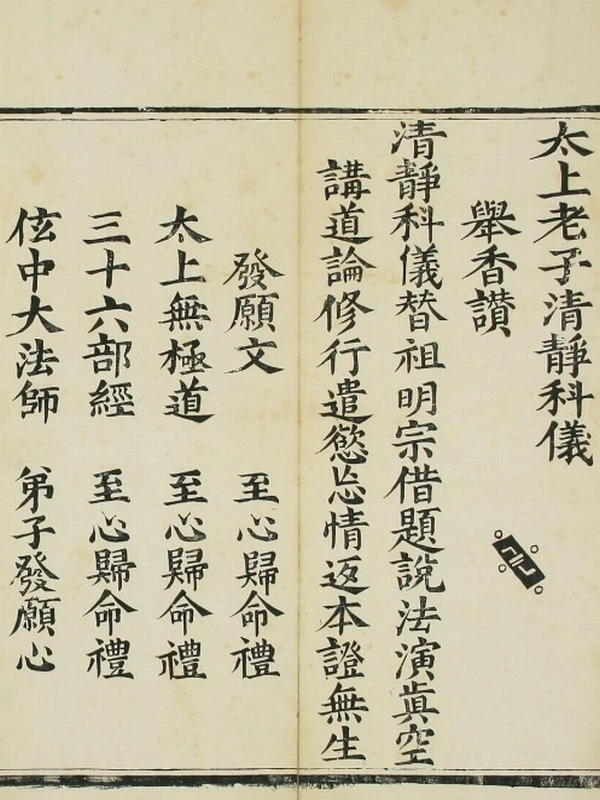 太上老子清靜科儀
舉香讚
清靜科儀替祖明宗借題說法演眞空
講道論修行遣慾忘情返本證無生
發願文 至心歸命禮
太上無極道 至心歸命禮
三十六部經 至心歸命禮
伭中大法師 弟子發願心